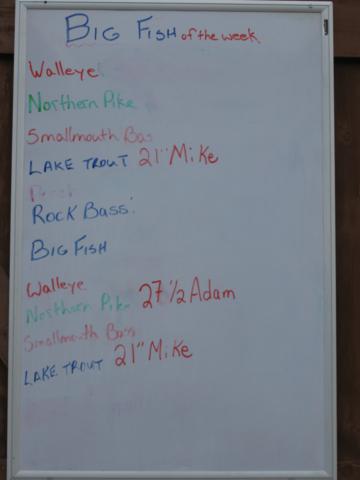 BIG FISH of the week
Walleye
Northern Pike
Smallmouth Bas
LAKE TROUT 21" Mike
Perch
ROCK BASS
BIG FISH
Walleye
Northern Pike 27 1/2 Adam
Smallmouth Bass
LAKE TROUT 21" Mike